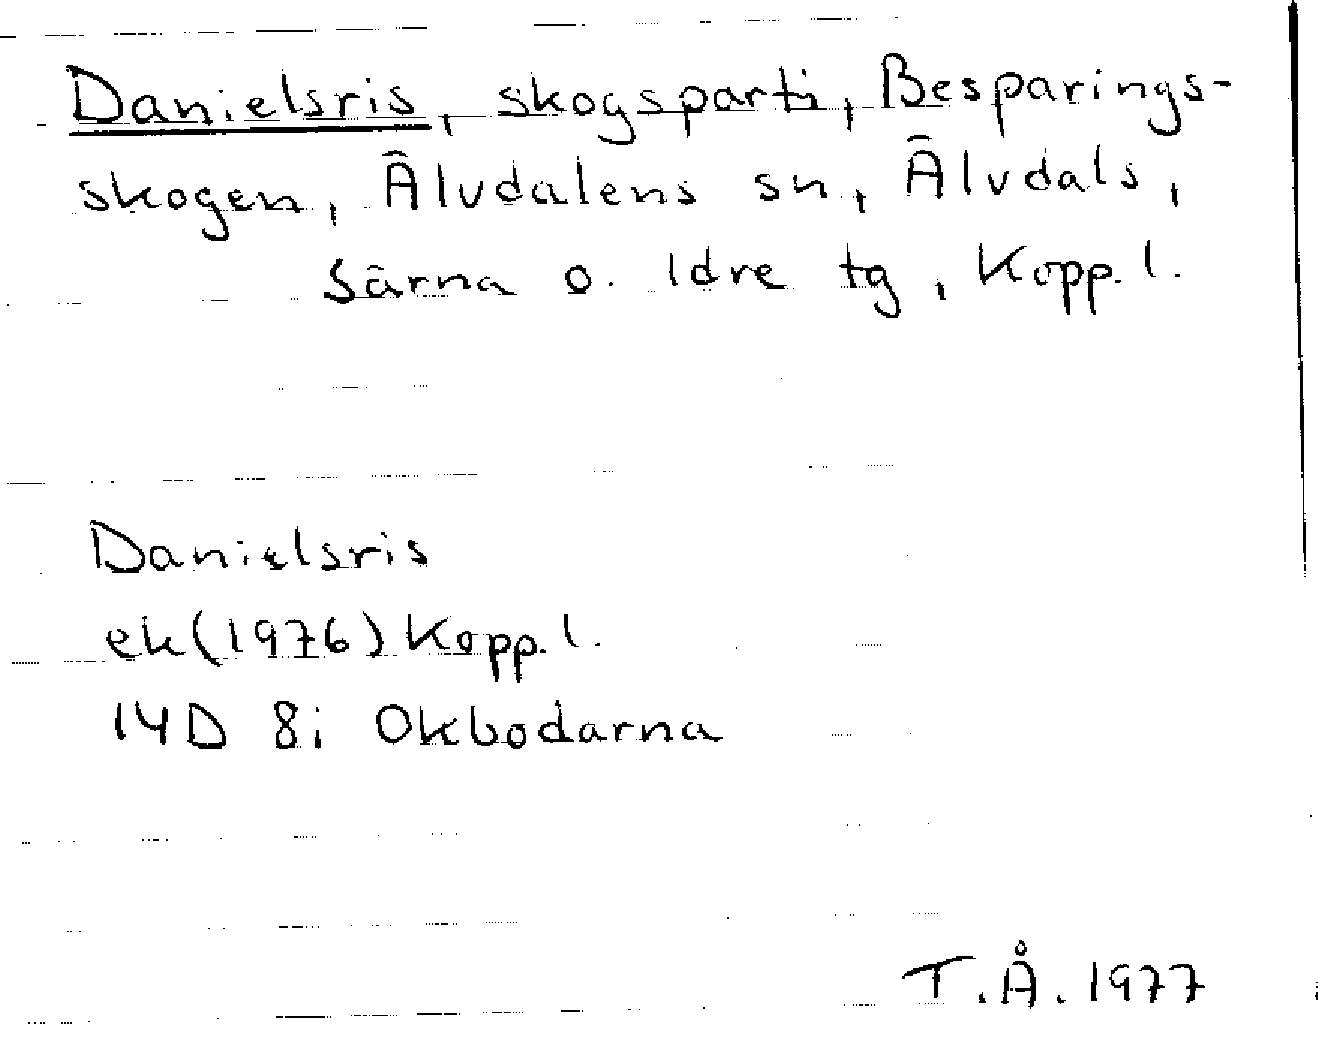 Danielsris, skogsparti, Besparings-
skogen, Älvdalens sn, Älvdals,
Särna o. Idre tg, Kopp. l.
Danielsris
ek(1976) Kopp. l.
14D 8i Okbodarna
T.Å. 1977